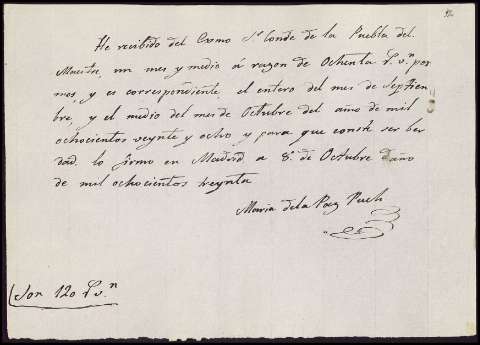 He recibido del Exmo Sr Conde de la Puebla del
Maestre, un mes y medio á razon de Ochenta r.s v.n por
mes, y es correspondiente el entero del mes de Septiem
bre, y el medio del mes de Octubre del año de mil
ochocientos veynte y ocho y para que conste ser ber
dad lo firmo en Madrid a 8 de Octubre año
de mil ochocientos treynta
Maria dela Paz Puch
Son 120 r.s v.n